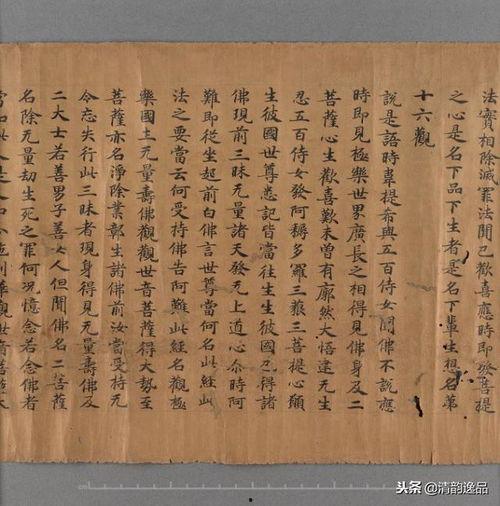 法實相除滅罪法聞已歡喜應時即發菩提
之心是名下品下生者是名下輩生想名苐
十六觀
說是語時韋提希與五百侍女聞佛所說應
時即見極樂世界廣長之相得見佛身及二
菩薩心生歡喜歎未曾有廓然大悟逮无生
忍五百侍女發阿耨多羅三藐三菩提心願
生彼國世尊悉記皆當往生生彼國已得諸
佛現前三昧无量諸天發无上道心尒時阿
難即從坐起前白佛言世尊當何名此經此
法之要當云何受持佛告阿難此經名觀極
樂國土无量壽佛觀觀世音菩薩得大勢至
菩薩亦名淨除業彰生諸佛前汝當受持无
令忘失行此三昧者現身得見无量壽佛及
二大士若善男子善女人但聞佛名二菩薩
名除无量劫生死之罪何況憶念若念佛者
觀世音菩薩大
头条@清韵逸品